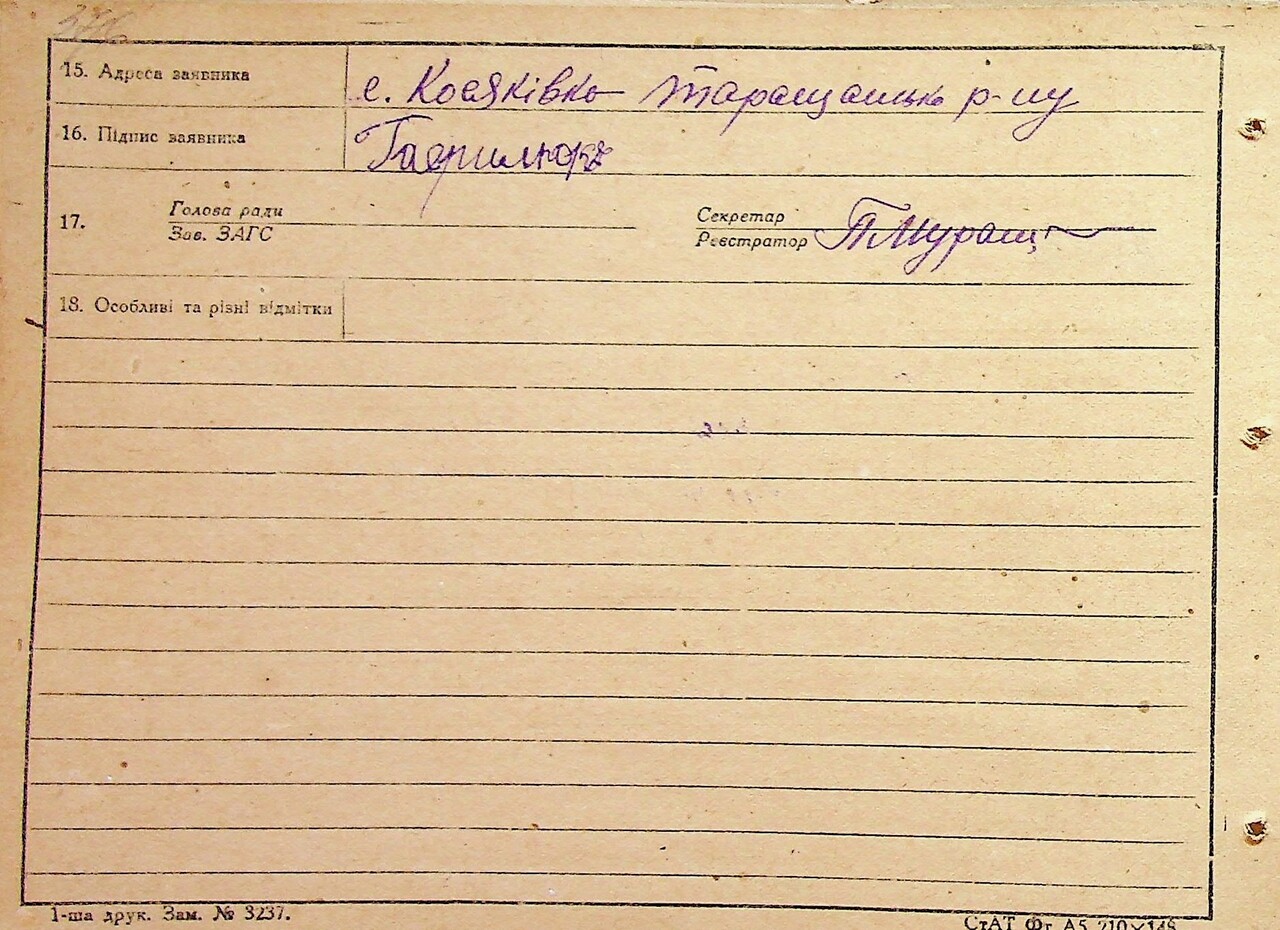 15. Адреса заявника с. Косяківка Таращансько р-ну
16. Підпис заявника Гаврилюк
17. Голова ради
Зав. ЗАГС
Секретар
Реєстратор
18. Особливі та різні відмітки
1-ша друк. Зам. № 3237.
СтАТ Фт. А5 210×148